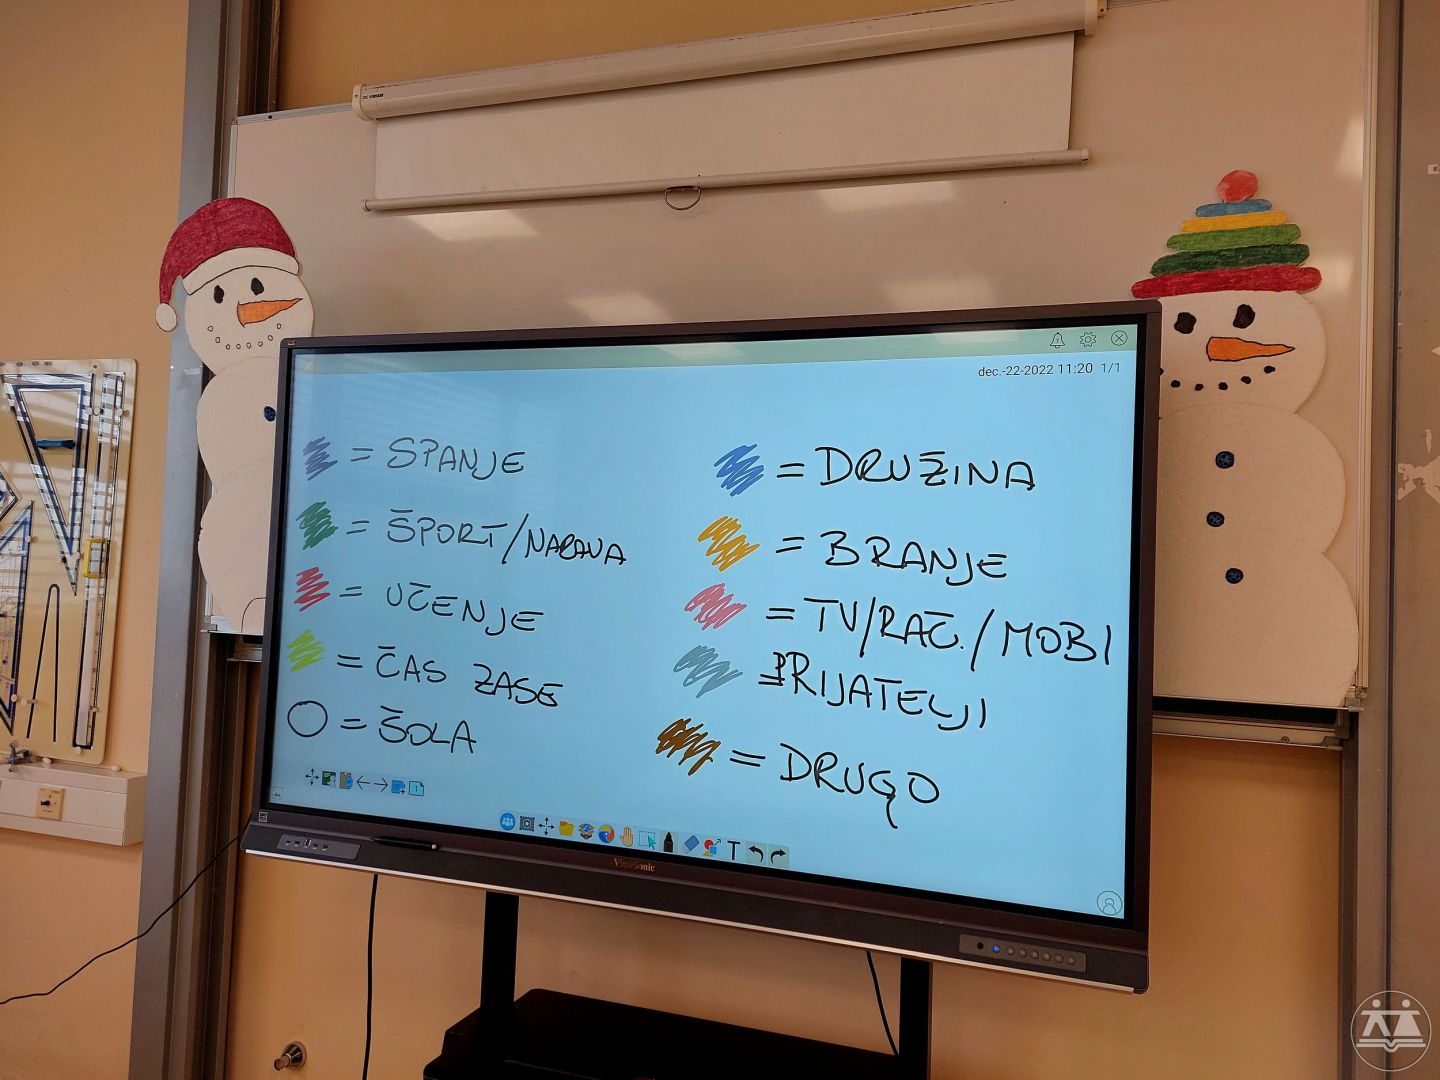 dec.-22-2022 11:20 1/1
= SPANJE
= ŠPORT/NARAVA
= UČENJE
= ČAS ZASE
= ŠOLA
= DRUŽINA
= BRANJE
= TV/RAČ./MOBI
= PRIJATELJI
= DRUGO
T
ViewSonic